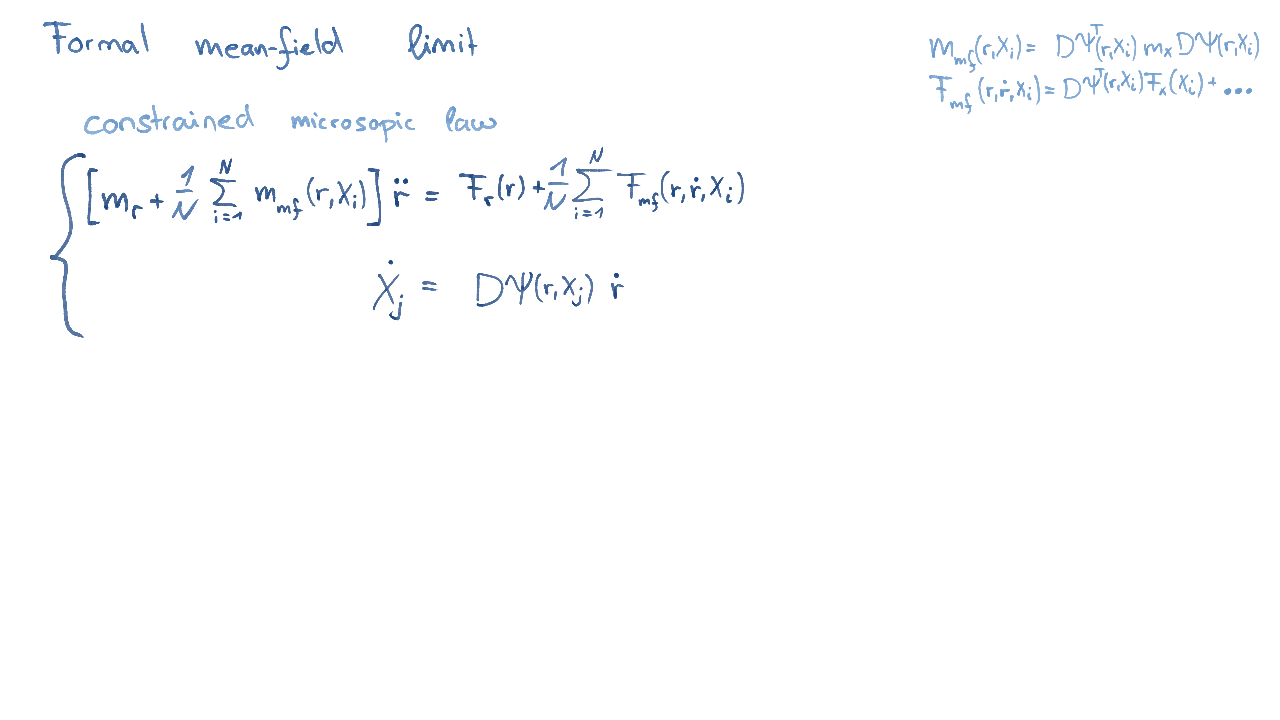 Formal mean-field limit
m_mf(r,X_i) = DΨ^T(r,X_i) m_x DΨ(r,X_i)
F_mf(r,ṙ,X_i) = DΨ^T(r,X_i) F_x(X_i) + ...
constrained microsopic law
[m_r + 1/N ∑_{i=1}^N m_mf(r,X_i)] r̈ = F_r(r) + 1/N ∑_{i=1}^N F_mf(r,ṙ,X_i)
Ẋ_j = DΨ(r,X_j) ṙ